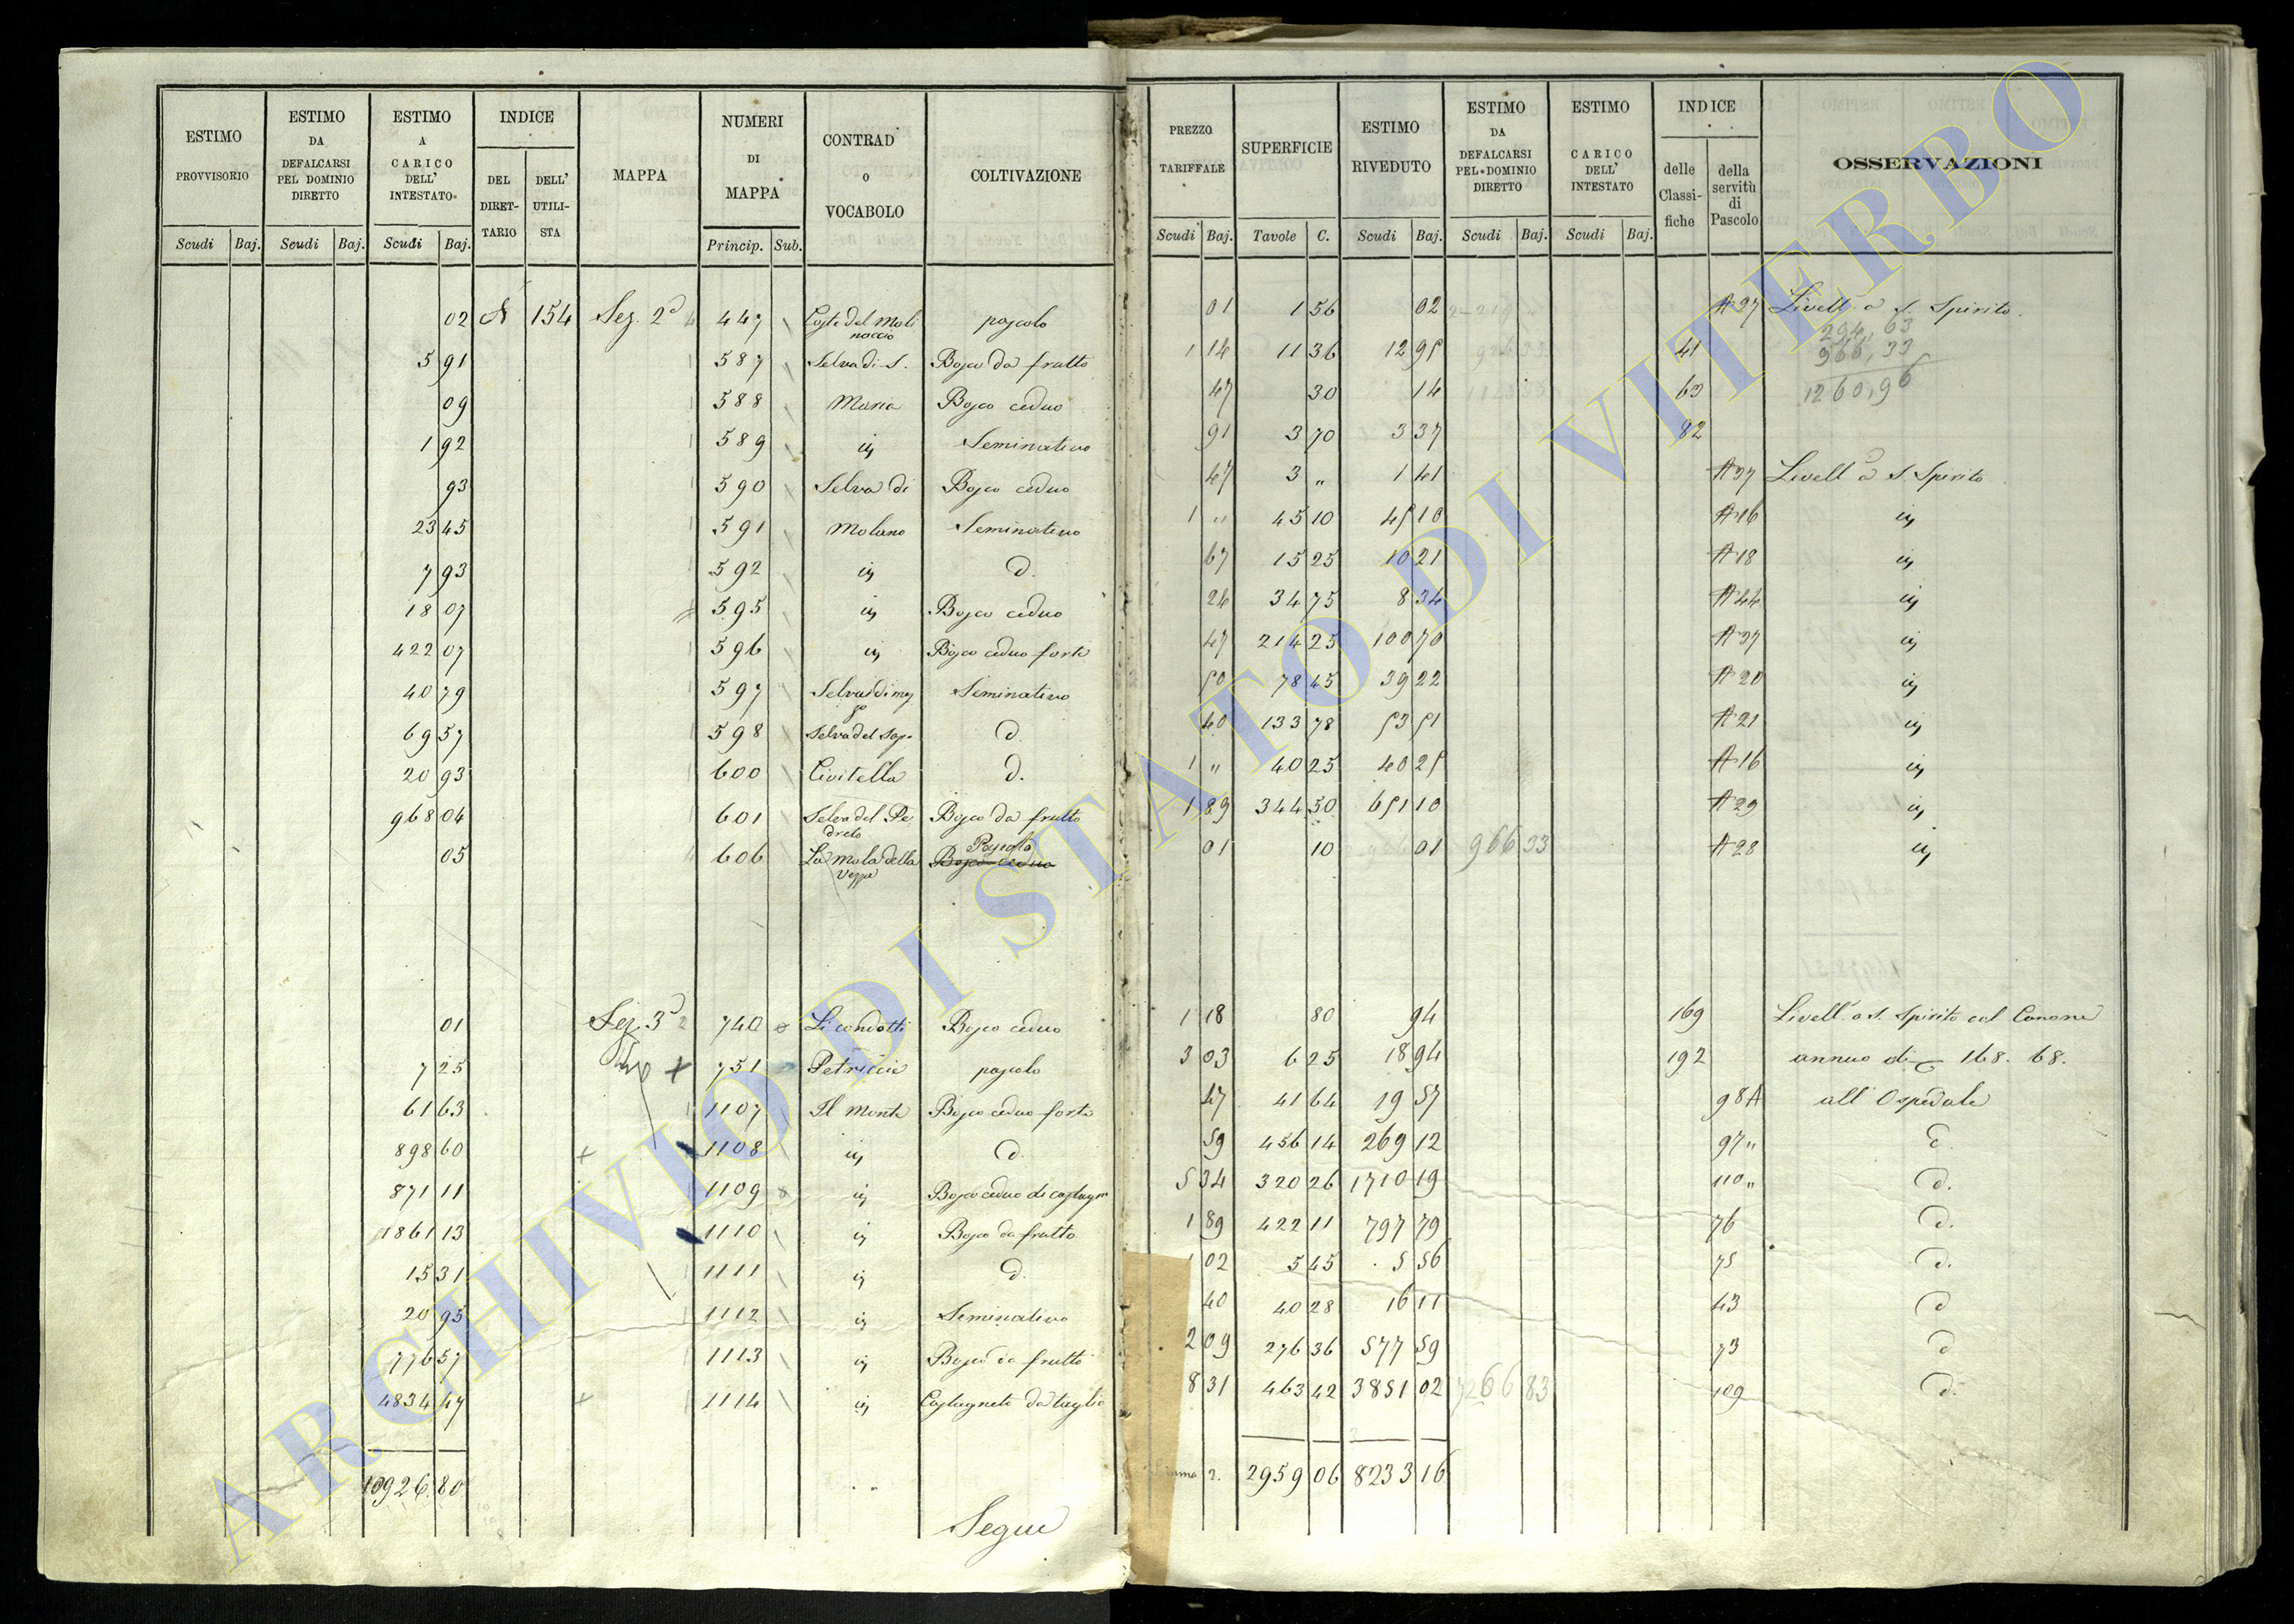 ESTIMO PROVVISORIO Scudi Baj.
ESTIMO DA DEFALCARSI PEL DOMINIO DIRETTO Scudi Baj.
ESTIMO A CARICO DELL' INTESTATO Scudi Baj.
INDICE DEL DIRETTARIO DELL' UTILISTA
MAPPA
NUMERI DI MAPPA Princip. Sub.
CONTRAD O VOCABOLO
COLTIVAZIONE
PREZZO TARIFFALE Scudi Baj.
SUPERFICIE Tavole C.
ESTIMO RIVEDUTO Scudi Baj.
ESTIMO DA DEFALCARSI PEL DOMINIO DIRETTO Scudi Baj.
ESTIMO CARICO DELL' INTESTATO Scudi Baj.
INDICE delle Classifiche della servitù di Pascolo
OSSERVAZIONI
02 N 154 Sez. 2ª 447 Coste del Molinaccio pascolo 01 1 56 02 A 27 Livell. a S. Spirito
294,63
5 91 587 Selva di S. Bosco da frutto 1 14 11 36 12 95 41 966,33
09 588 Maria Bosco ceduo 47 30 14 63 1260,96
1 92 589 Seminativo 91 3 70 3 37 82
93 590 Selva di Bosco ceduo 47 3 " 1 41 A 37 Livell. a S. Spirito
23 45 591 Molano Seminativo 1 " 45 10 45 10 A 16
7 93 592 d. 67 15 25 10 21 A 18
18 07 595 Bosco ceduo 24 34 75 8 34 A 44
422 07 596 Bosco ceduo forte 47 214 25 100 70 A 37
40 79 597 Selva di mezzo Seminativo 50 78 45 39 22 A 20
69 57 598 Selva del d. 40 133 78 53 51 A 21
20 93 600 Civitella d. 1 " 40 25 40 25 A 16
968 04 601 Selva del Pedreto Bosco da frutto 1 89 344 50 651 10 A 29
05 606 La Mola della Vezza Pascolo Bosco ceduo 01 10 01 966 33 A 28
01 Sez. 3ª 740 Li condotti Bosco ceduo 1 18 80 94 169 Livell. a S. Spirito col Canone
7 25 751 Petriccie pascolo 3 03 6 25 18 94 192 annuo di 168. 68.
61 63 1107 Il Monte Bosco ceduo forte 47 41 64 19 57 98 A all' Ospedale
898 60 1108 d. 59 456 14 269 12 97 " d.
871 11 1109 Bosco ceduo di castagno 5 34 320 26 1710 19 110 " d.
1861 13 1110 Bosco da frutto 1 89 422 11 797 79 76 d.
15 31 1111 d. 1 02 5 45 5 56 75 d.
20 95 1112 Seminativo 40 40 28 16 11 43 d
776 57 1113 Bosco da frutto 2 09 276 36 577 59 73 d
4834 47 1114 Castagneto da taglio 8 31 463 42 3851 02 7266 83 109 d.
10926 80 Somma 2. 2959 06 8233 16
Segue
ARCHIVIO DI STATO DI VITERBO